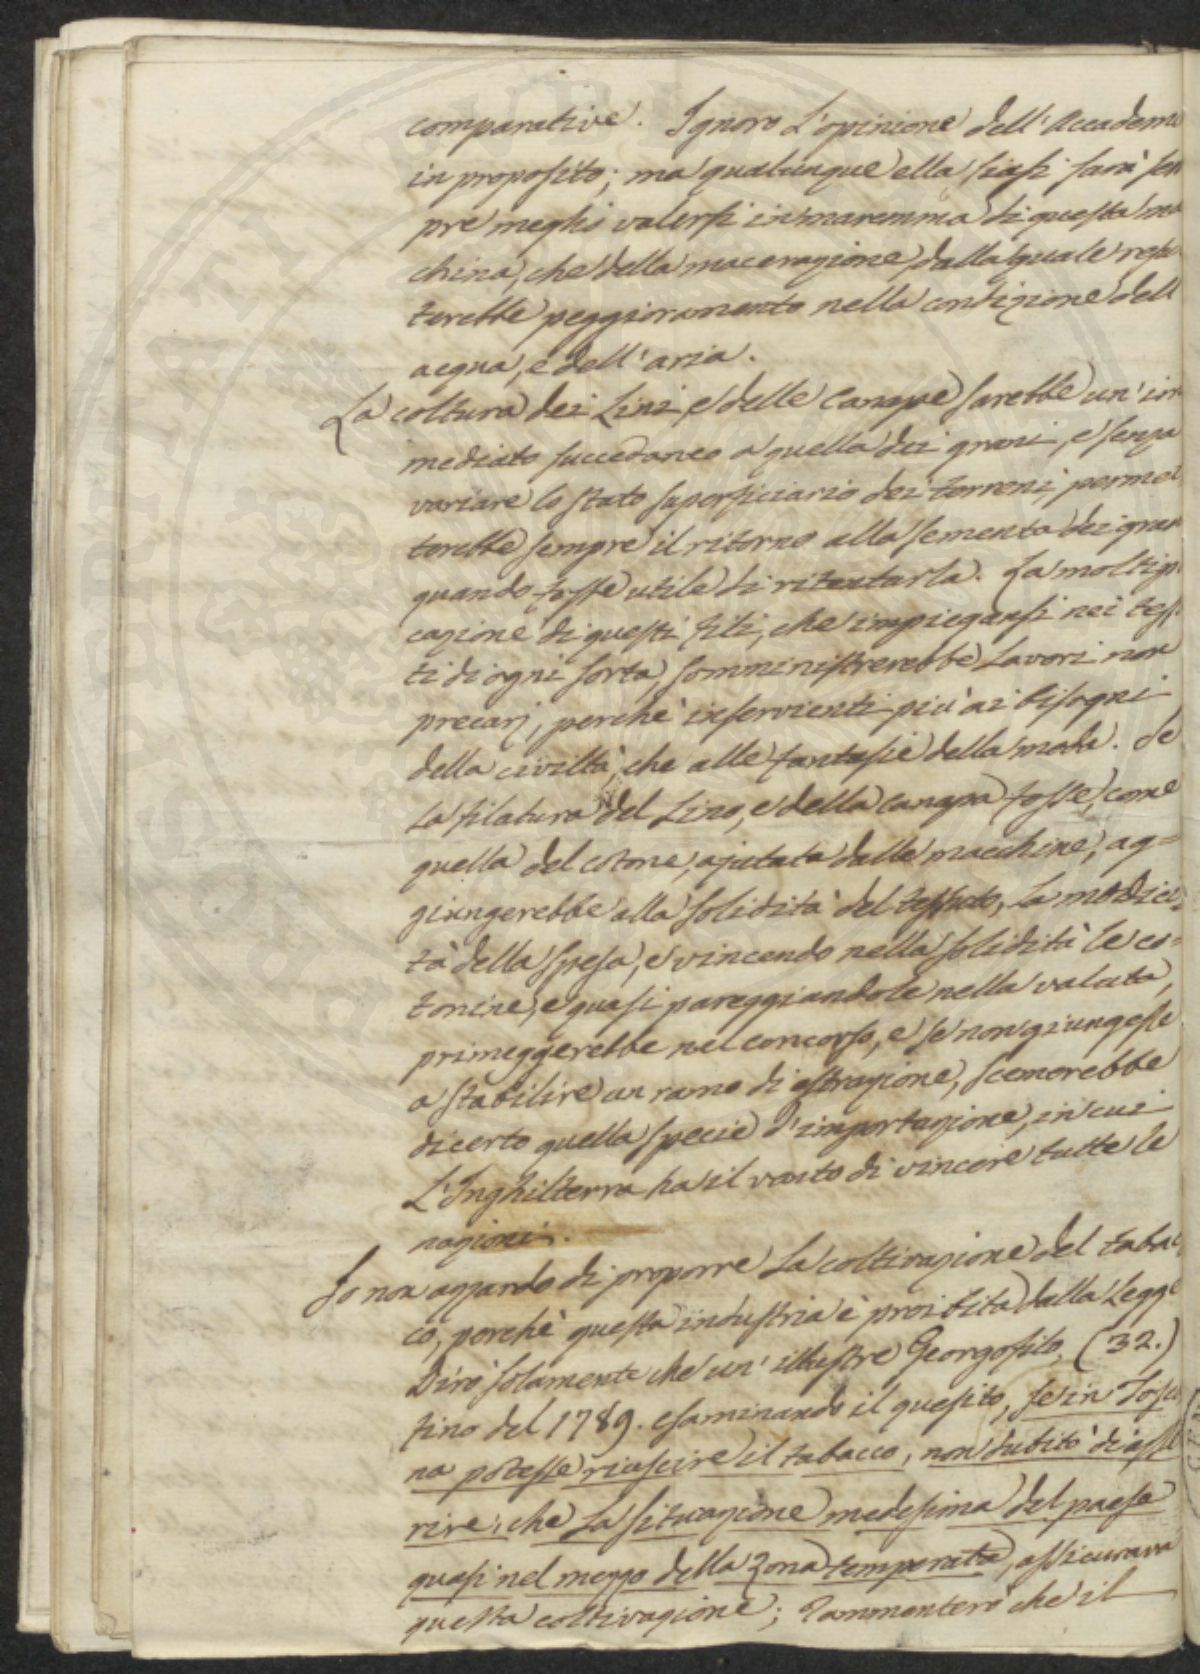 comparative. Ignoro l'opinione dell'Accademi
in proposito; ma qualunque ella siasi sarà sem
pre meglio valersi in maremma di questa ma
china, che della macerazione, dalla quale resu
terebbe peggioramento nella condizione dell
acqua, e dell'aria.
La coltura dei Lini, e delle Canape sarebbe un'im
mediato succedaneo a quella dei grani, e senza
variare lo stato superficiario dei terreni permet
terebbe sempre il ritorno alla sementa dei gran
quando fosse utile di ritentarla. La moltipl
cazione di questi fili, che impiegansi nei tess
ti di ogni sorta, somministrerebbe Lavori non
precarj, perchè inservienti più ai bisogni
della civiltà, che alle fantasie della moda. Se
La filatura del Lino, e della canapa fosse, come
quella del cotone, ajutata dalle macchine, ag=
giungerebbe alla solidità del tessuto, La modici=
tà della spesa, e vincendo nella solidità le co=
tonine, e quasi pareggiandole nella valuta,
primeggerebbe nel concorso, e se non giungesse
a stabilire un ramo di estrazione, scemerebbe
di certo quella specie d'importazione, in cui
L'Inghilterra ha il vanto di vincere tutte le
nazioni.
Io non azzardo di proporre La coltivazione del tabac
co, perchè questa industria è proibita dalla Legge
Dirò solamente che un'illustre Georgofilo, (32.)
fino del 1789. esaminando il quesito, se in Tosca
na potesse riuscire il tabacco, non dubitò di asse
rire, che La situazione medesima del paese
quasi nel mezzo della Zona temperata, assicurava
questa coltivazione; Rammenterò che il
PROPRIETATI PUBLICAE